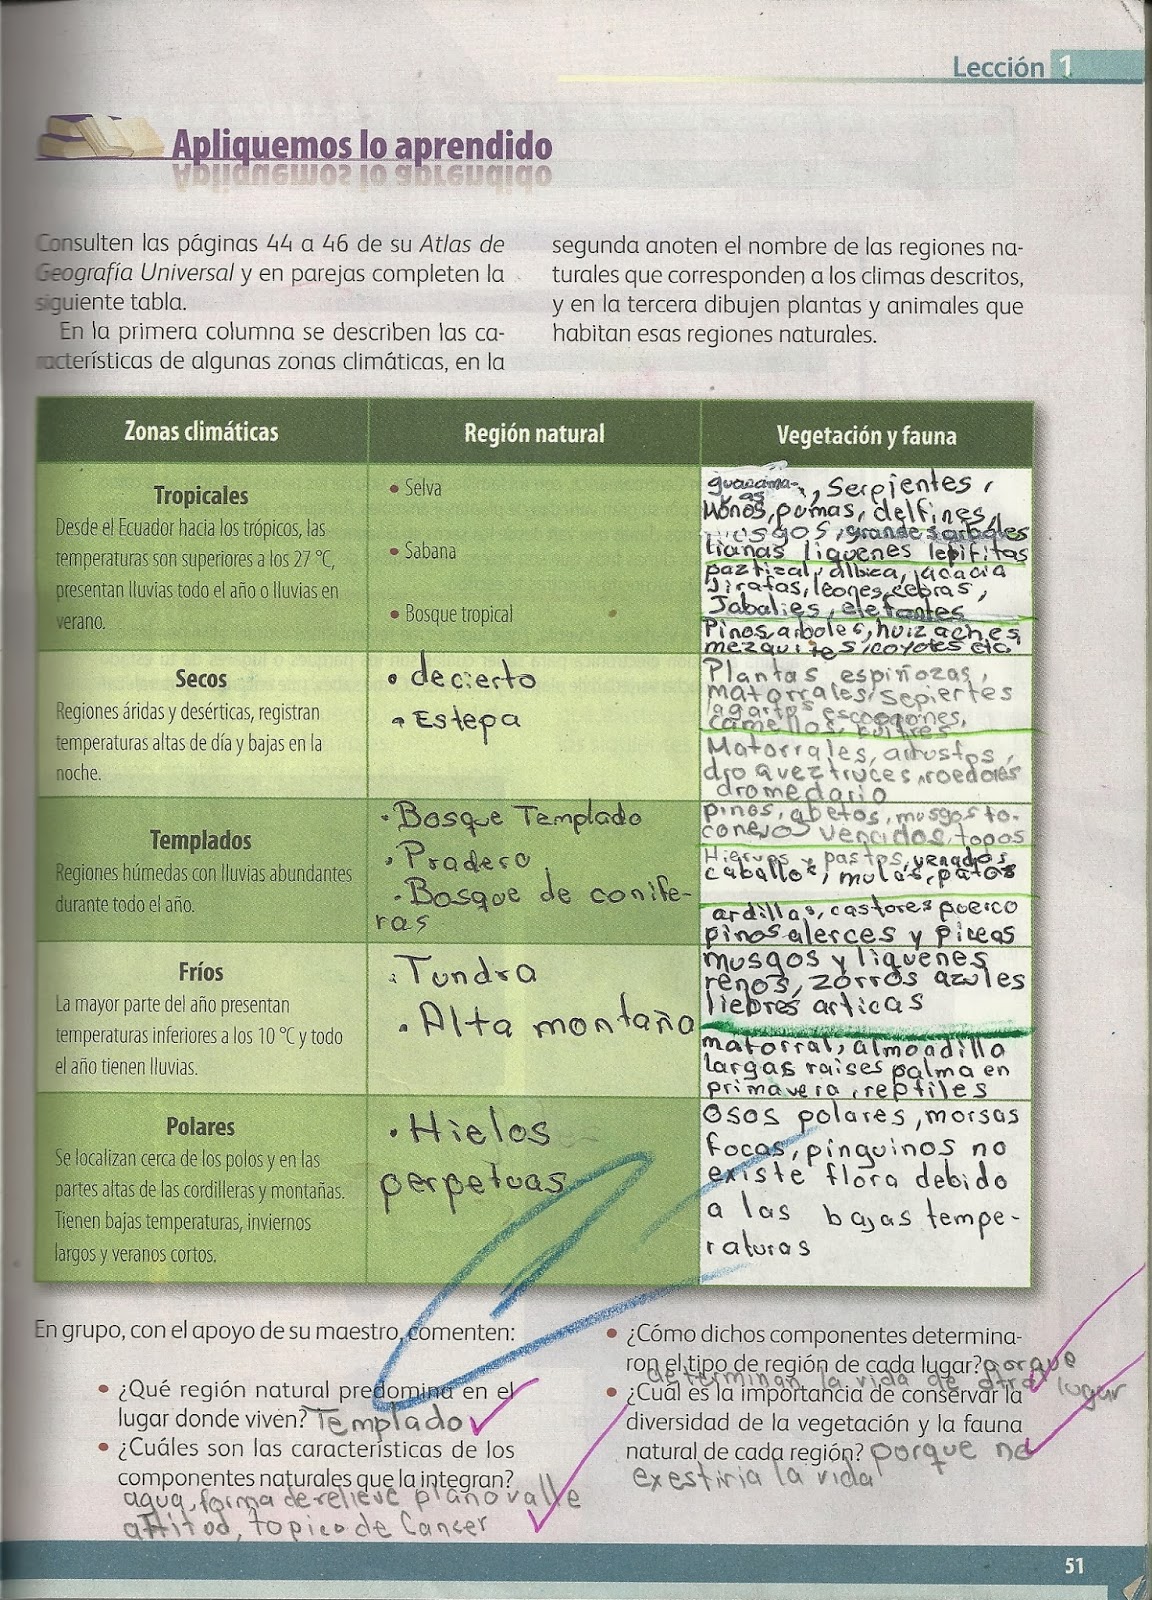 Lección 1
Apliquemos lo aprendido
Consulten las páginas 44 a 46 de su Atlas de
Geografía Universal y en parejas completen la
siguiente tabla.
En la primera columna se describen las ca-
racterísticas de algunas zonas climáticas, en la
segunda anoten el nombre de las regiones na-
turales que corresponden a los climas descritos,
y en la tercera dibujen plantas y animales que
habitan esas regiones naturales.
Zonas climáticas
Región natural
Vegetación y fauna
Tropicales
Desde el Ecuador hacia los trópicos, las
temperaturas son superiores a los 27 °C,
presentan lluvias todo el año o lluvias en
verano.
• Selva
• Sabana
• Bosque tropical
guacama-
as, Serpientes,
Monos, pumas, delfines,
grandes arboles
lianas liquenes
paztizal, albica, acacia
Jirafas, leones, cebras,
Jabalies, elefantes
Pinos, arboles, huizaches,
mezquites, coyotes etc.
Secos
Regiones áridas y desérticas, registran
temperaturas altas de día y bajas en la
noche.
• decierto
• Estepa
Plantas espiñozas,
matorrales, sepiertes
lagartos escorpiones,
camellos, buitres
Matorrales, arbustos,
dro aveztruces, roedores
dromedario
Templados
Regiones húmedas con lluvias abundantes
durante todo el año.
• Bosque Templado
• Pradera
• Bosque de conife-
ras
pinos, abetos, musgos to-
conejos venados, topos
Hierbas y pastos, venados,
caballos, mulas, patos
ardillas, castores puerco
pinos alerces y piceas
Fríos
La mayor parte del año presentan
temperaturas inferiores a los 10 °C y todo
el año tienen lluvias.
• Tundra
• Alta montaña
musgos y liquenes
renos, zorros azules
liebres articas
matorral, almoadilla
largas raises palma en
primavera, reptiles
Polares
Se localizan cerca de los polos y en las
partes altas de las cordilleras y montañas.
Tienen bajas temperaturas, inviernos
largos y veranos cortos.
• Hielos
perpetuas
Osos polares, morsas
focas, pinguinos no
existe flora debido
a las bajas tempe-
raturas
En grupo, con el apoyo de su maestro, comenten:
• ¿Qué región natural predomina en el
lugar donde viven? Templado
• ¿Cuáles son las características de los
componentes naturales que la integran?
agua, forma de relieve plano valle
altitod, topico de Cancer
• ¿Cómo dichos componentes determina-
ron el tipo de región de cada lugar? porque
determinan la vida de lugar
• ¿Cuál es la importancia de conservar la
diversidad de la vegetación y la fauna
natural de cada región? porque no
exestiria la vida
51